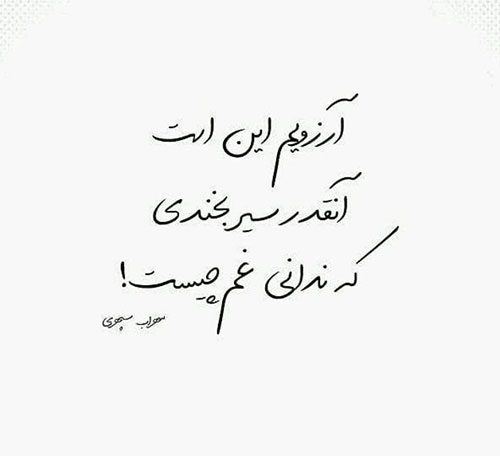 آرزویم این است
آنقدر سیر بخندی
که ندانی غم چیست!
سهراب سپهری